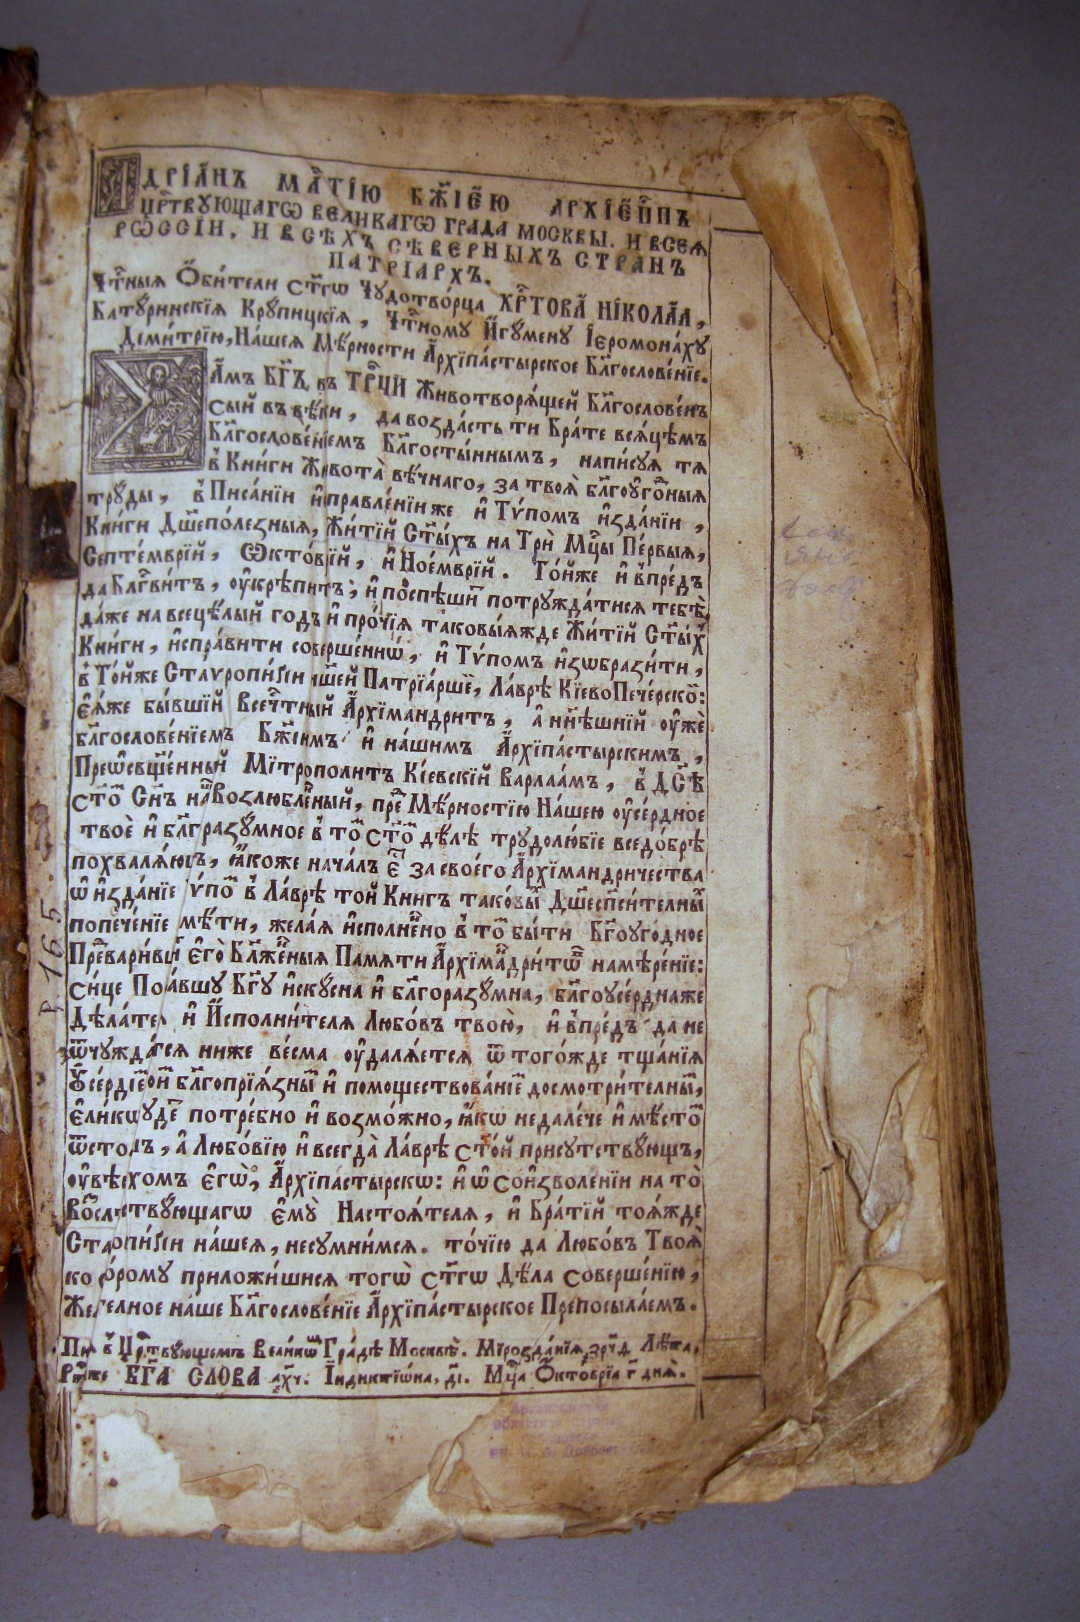 АДРІА́НЪ МЛ҃ТІЮ БЖ҃ІЕЮ АРХІЕП҃ПЪ
ЦР҃ТВУЮЩАГѠ ВЕЛИКАГѠ ГРАДА МОСКВЫ. И ВСЕЯ
РѠССІИ. И ВСѢХЪ СѢВЕРНЫХЪ СТРАНЪ
ПАТРІАРХЪ.
Чт҃ныя Ѻби́тели ст҃гѡ Чудотво́рца ХР҃ТОВА НІКОЛА́А,
Батꙋ́ринскїя Крꙋпицкїя, Чт҃номꙋ И҆гꙋ́менꙋ І҆еромона́хꙋ
Дими́трїю, На́шея Мѣ́рности А҆рхїпа́стырское Бл҃гослове́нїе.
Са́мъ БГ҃Ъ, въ ТРЦ҃И Животворя́щей Бл҃гослове́нъ
сый въ вѣ́ки, да возда́сть ти Бра́те вся́цѣмъ
Бл҃гослове́нїемъ Бл҃госты́ннымъ, напи́сꙋя тя
в҆ Кни́ги Живота̀ вѣ́чнаго, за твоя̀ бл҃гоꙋго́ныя
трꙋды̀, в҆ Писа́нїи и҆правле́нїи же и҆ Тѵ́помъ и҆зда́нїи,
Кни́ги Дш҃епо́лезныя, Жи́тїй Ст҃ы́хъ на Трѝ Мц҃ы Пе́рвыя,
Септе́мврїй, Ѡкто́врїй, и҆ Ное́мврїй. То́йже и҆ впре́дъ
да Блг҃ви́тъ, ᲂу҆крѣпи́тъ; и҆ поспѣши́т потрꙋжда́тися тебѣ̀,
да́же на всецѣ́лый годъ и҆ про́чїя таковы́яжде Жи́тїй Ст҃ы́х
Кни́ги, и҆спра́вити соверше́ннѡ, и҆ Тѵ́помъ и҆зѡбрази́ти,
в҆ То́йже Ставропи́гїи н҃шей Патрїа́ршей, Ла́врѣ Кїево Пече́рской:
є҆я́же бы́вшїй Всечт҃ный А҆рхїмандри́тъ, а҆ нн҃ѣшнїй ᲂу҆жѐ
бл҃гослове́нїемъ Бж҃їимъ и҆ на́шимъ А҆рхїпа́стырскимъ,
Преѡсвщ҃е́нный Мїтрополи́тъ Кі́евскїй Варлаа́мъ, в҆ Дс҃ѣ
ст҃о́м Сн҃ъ на́шъ Возлю́бленный, пре́д Мѣ́рностїю На́шею ᲂу҆се́рдное
твоѐ и҆ бл҃гразꙋ́мное в҆ то́м ст҃о́м дѣ́лѣ трꙋдолю́бїе вседо́брѣ
похваля́ютъ, ꙗ҆́коже нача́лъ є҆с за своего̀ А҆рхїмандри́чества
ѡ҆ и҆зда́нїе тѵ́пом в҆ Ла́врѣ той Книгъ тако́вых Дш҃еспаси́телных
попече́нїе и҆мѣ́ти, жела́я и҆спо́лнено в҆ то́м бы́ти Бг҃оуго́дное
Превари́вшїй є҆гѡ̀ Бл҃же́нныя Па́мяти А҆рхїмандри́тѡв намѣ́ренїе:
си́це Пода́вшꙋ Бг҃ꙋ и҆скꙋ́сна и҆ бл҃горазꙋ́мна, бл҃гоусе́рдна же
Дѣ́лателя и҆ И҆сполни́теля Любо́въ твою̀, и҆ впре́дъ да не
ѿчꙋжда́тся ниже ве́сма ᲂу҆даля́ется ѿ того́жде тща́нїя
Ꙋсе́рдїем бл҃гопрїя́зным и҆ помоществова́нїем досмотри́телным,
є҆ли́кѡ бꙋ́дет потре́бно и҆ возмо́жно, ꙗ҆́кѡ недале́че и҆ мѣ́стом
ѿстои́тъ, а҆ Любо́вїю и҆ всегда̀ Ла́врѣ Ст҃о́й присꙋ́тствꙋющъ,
ᲂу҆вѣ́хомъ є҆гѡ̀, А҆рхїпа́стырскѡ: и҆ ѡ҆ сои҆зволе́нїи на то̀
Во́слѣдствꙋющагѡ є҆мꙋ̀ Настоя́теля, и҆ Бра́тїй тоя́жде
Ставропи́гїи на́шея, несꙋмни́мся. то́чїю да Любо́въ Твоя̀
кото́ромꙋ приложи́шися тогѡ̀ ст҃гѡ Дѣ́ла соверше́нїю,
Жела́телное на́ше Бл҃гослове́нїе А҆рхїпа́стырское Препосыла́емъ.
Писа́ в҆ Цр҃твꙋющемъ Вели́ком Гра́дѣ Москвѣ̀. Мїрозда́нїя ҂зр҃ч҃д Лѣ́та,
Рж҃тже БГ҃А СЛОВА ҂ах҃ч. І҆ндиктїѡ́на, д҃і. Мц҃а Ѻ҆ктобрїа г҃ дня̀.
р 165.